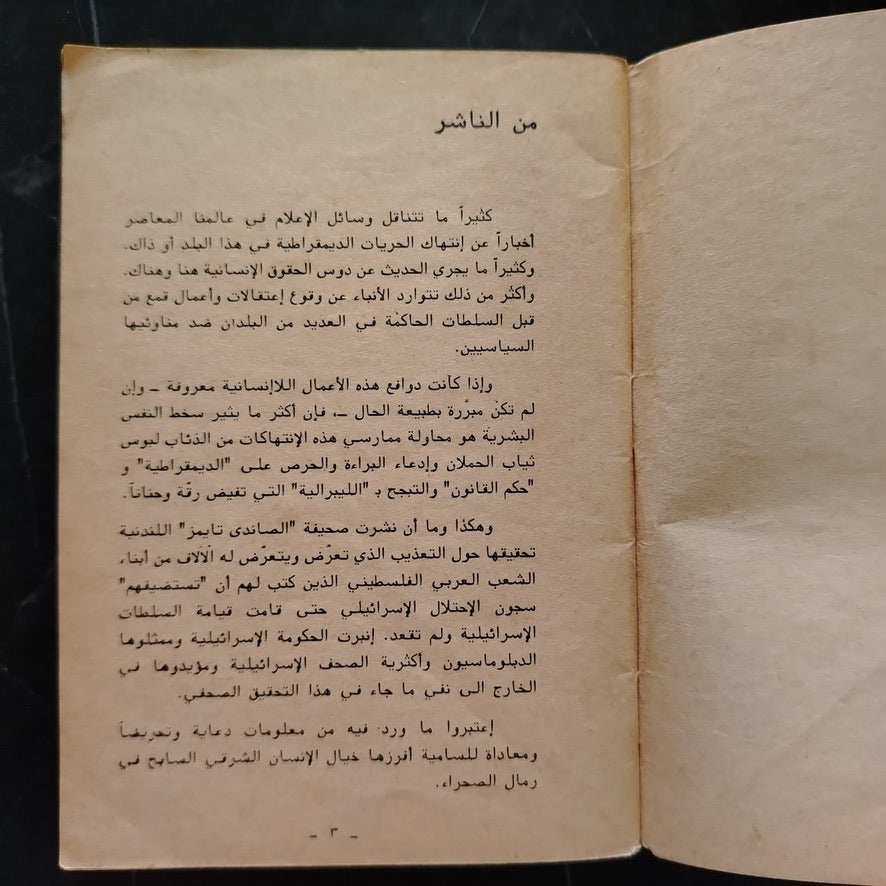 من الناشر
كثيراً ما تتناقل وسائل الإعلام في عالمنا المعاصر
أخباراً عن إنتهاك الحريات الديمقراطية في هذا البلد أو ذاك.
وكثيراً ما يجري الحديث عن دوس الحقوق الإنسانية هنا وهناك.
وأكثر من ذلك تتوارد الأنباء عن وقوع إعتقالات وأعمال قمع من
قبل السلطات الحاكمة في العديد من البلدان ضد مناوئيها
السياسيين.
وإذا كانت دوافع هذه الأعمال اللاإنسانية معروفة ــ وإن
لم تكن مبرّرة بطبيعة الحال ــ، فإن أكثر ما يثير سخط النفس
البشرية هو محاولة ممارسي هذه الإنتهاكات من الذئاب لبوس
ثياب الحملان وإدعاء البراءة والحرص على "الديمقراطية" و
"حكم القانون" والتبجح بـ "الليبرالية" التي تفيض رقّة وحناناً.
وهكذا وما أن نشرت صحيفة "الصاندى تايمز" اللندنية
تحقيقها حول التعذيب الذي تعرّض ويتعرّض له الآلاف من أبناء
الشعب العربي الفلسطيني الذين كتب لهم أن "تستضيفهم"
سجون الإحتلال الإسرائيلي حتى قامت قيامة السلطات
الإسرائيلية ولم تقعد. إنبرت الحكومة الإسرائيلية وممثلوها
الدبلوماسيون وأكثرية الصحف الإسرائيلية ومؤيدوها في
الخارج الى نفي ما جاء في هذا التحقيق الصحفي.
إعتبروا ما ورد فيه من معلومات دعاية وتحريضاً
ومعاداة للسامية أفرزها خيال الإنسان الشرقي السابح في
رمال الصحراء.
ـ ٣ ـ